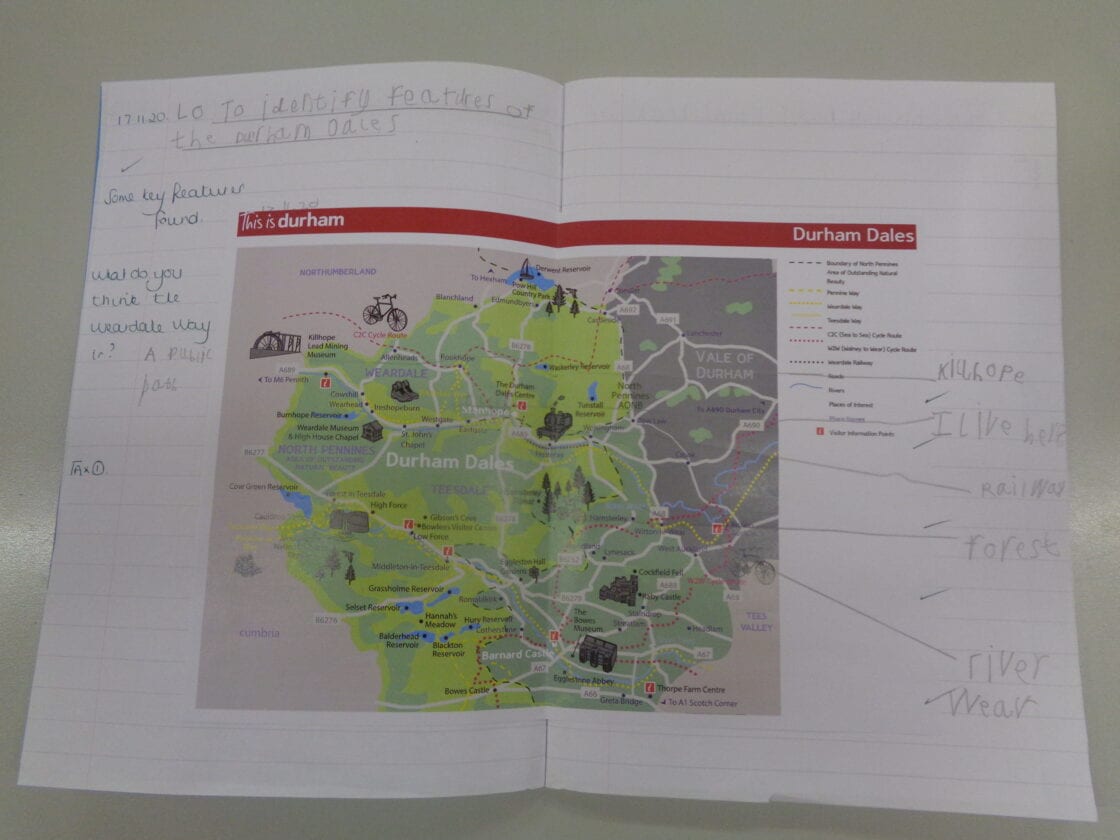 17.11.20. LO To identify features of
the Durham Dales
Some key features
found.
17.11.20
What do you
think the
Weardale Way
is? A public
path
TA x 1
This is durham
Durham Dales
NORTHUMBERLAND
To Hexham
Derwent Reservoir
Pow Hill
Country Park
Blanchland
Edmundbyers
A692
A691
Lanchester
C2C Cycle Route
Killhope
Lead Mining
Museum
Allenheads
Rookhope
B6278
A68
VALE OF
DURHAM
A689
To M6 Penrith
WEARDALE
Waskerley Reservoir
North
Pennines
AONB
The Durham
Dales Centre
Cowshill
Wearhead
Ireshopeburn
Tunstall
Reservoir
Stanhope
To A690 Durham City
Burnhope Reservoir
Westgate
Eastgate
A689
Wolsingham
Tow Law
A690
Weardale Museum
& High House Chapel
St. John's
Chapel
Frosterley
Crook
B6277
NORTH PENNINES
AREA OF OUTSTANDING
NATURAL BEAUTY
Durham Dales
TEESDALE
Cow Green Reservoir
Forest in Teesdale
High Force
Gibson's Cave
Bowlees Visitor Centre
Low Force
B6278
Hamsterley
A68
Witton
West Auckland
Middleton-in-Teesdale
Eggleston Hall
Gardens
B6282
Cockfield Fell
A688
Raby Castle
Staindrop
A68
Grassholme Reservoir
Romaldkirk
B6279
Selset Reservoir
Hannah's
Meadow
Hury Reservoir
Cotherstone
The
Bowes
Museum
Streatlam
Headlam
TEES
VALLEY
B6276
cumbria
Balderhead
Reservoir
Blackton
Reservoir
Barnard Castle
A67
A67
Egglestone Abbey
Bowes Castle
A66
Greta Bridge
Thorpe Farm Centre
To A1 Scotch Corner
Boundary of North Pennines
Area of Outstanding Natural
Beauty
Pennine Way
Weardale Way
Teesdale Way
C2C (Sea to Sea) Cycle Route
W2W (Walney to Wear) Cycle Route
Weardale Railway
Roads
Rivers
Places of Interest
Place Names
Visitor Information Points
Kilhope
I live here
Railway
forest
river
Wear